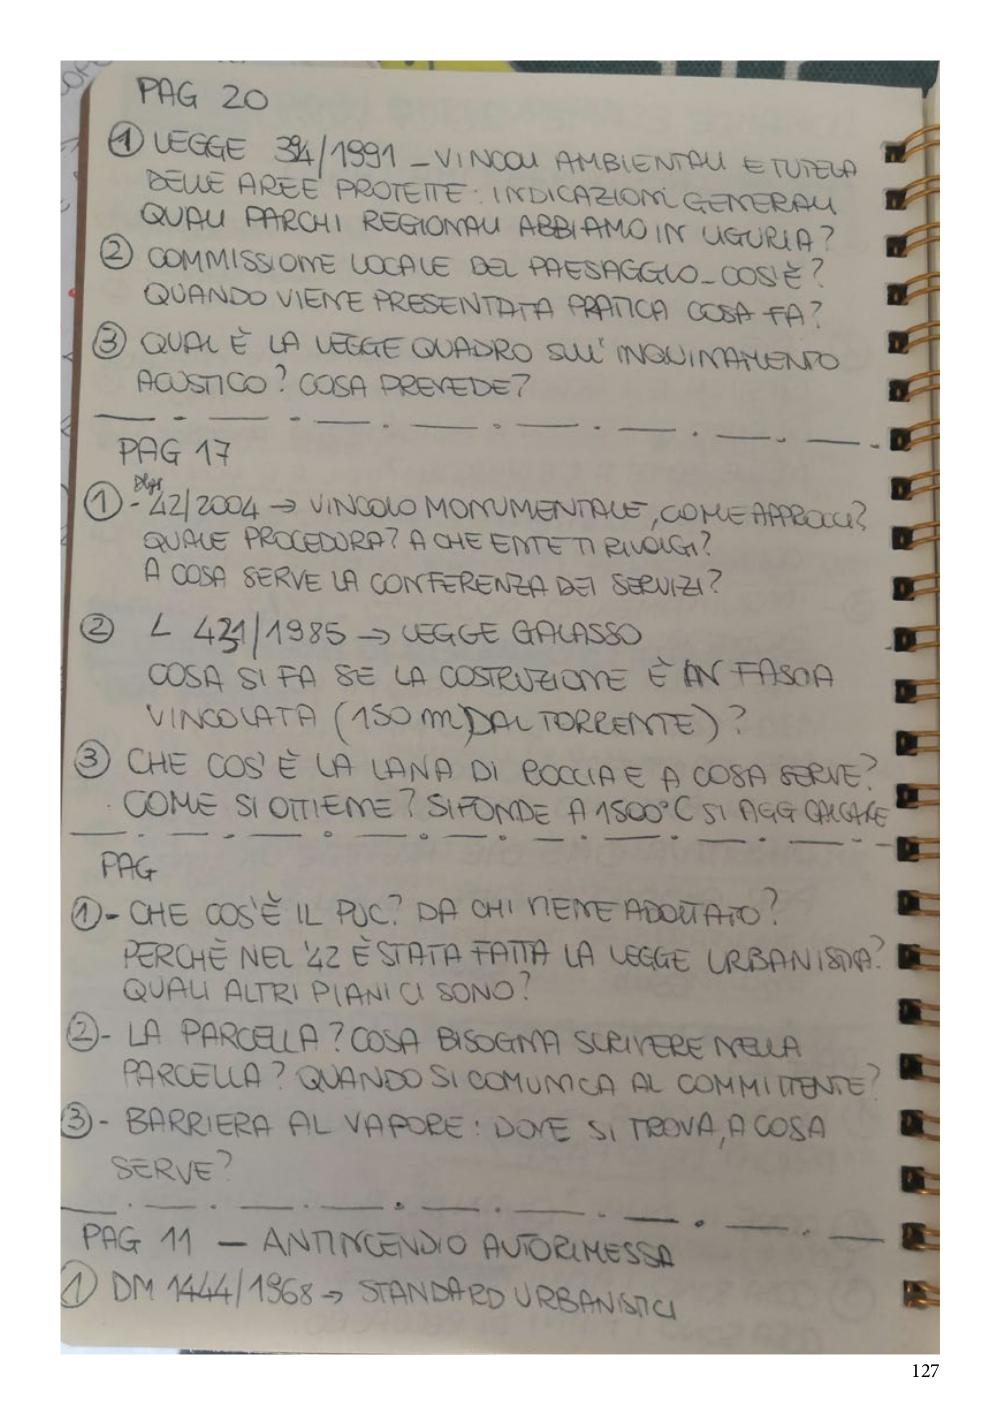 PAG 20
① LEGGE 394/1991 - VINCOLI AMBIENTALI E TUTELA
DELLE AREE PROTETTE: INDICAZIONI GENERALI
QUALI PARCHI REGIONALI ABBIAMO IN LIGURIA?
② COMMISSIONE LOCALE DEL PAESAGGIO - COS'È?
QUANDO VIENE PRESENTATA PRATICA COSA FA?
③ QUAL È LA LEGGE QUADRO SULL'INQUINAMENTO
ACUSTICO? COSA PREVEDE?
PAG 17
① - Dlgs 42/2004 → VINCOLO MONUMENTALE, COME APPROCCI?
QUALE PROCEDURA? A CHE ENTE TI RIVOLGI?
A COSA SERVE LA CONFERENZA DEI SERVIZI?
② L 431/1985 → LEGGE GALASSO
COSA SI FA SE LA COSTRUZIONE È IN FASCIA
VINCOLATA (150 m DAL TORRENTE)?
③ CHE COS'È LA LANA DI ROCCIA E A COSA SERVE?
COME SI OTTIENE? SI FONDE A 1500°C SI AGG CALCARE
PAG
① - CHE COS'È IL PUC? DA CHI VIENE ADOTTATO?
PERCHÈ NEL '42 È STATA FATTA LA LEGGE URBANISTICA?
QUALI ALTRI PIANI CI SONO?
② - LA PARCELLA? COSA BISOGNA SCRIVERE NELLA
PARCELLA? QUANDO SI COMUNICA AL COMMITTENTE?
③ - BARRIERA AL VAPORE: DOVE SI TROVA, A COSA
SERVE?
PAG 11 — ANTINCENDIO AUTORIMESSA
① DM 1444/1968 → STANDARD URBANISTICI
127